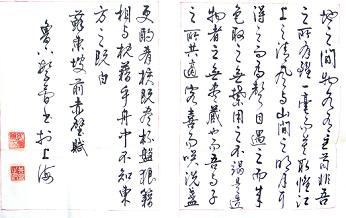 地之間物各有主苟非吾
之所有雖一毫而莫取惟江
上之清風與山間之明月耳
得之而為聲目遇之而成
色取之無禁用之不竭是造
物者之無盡藏也而吾與子
之所共適客喜而笑洗盞
更酌肴核既盡杯盤狼籍
相與枕藉乎舟中不知東
方之既白
蘇東坡前赤壁賦
書於上海